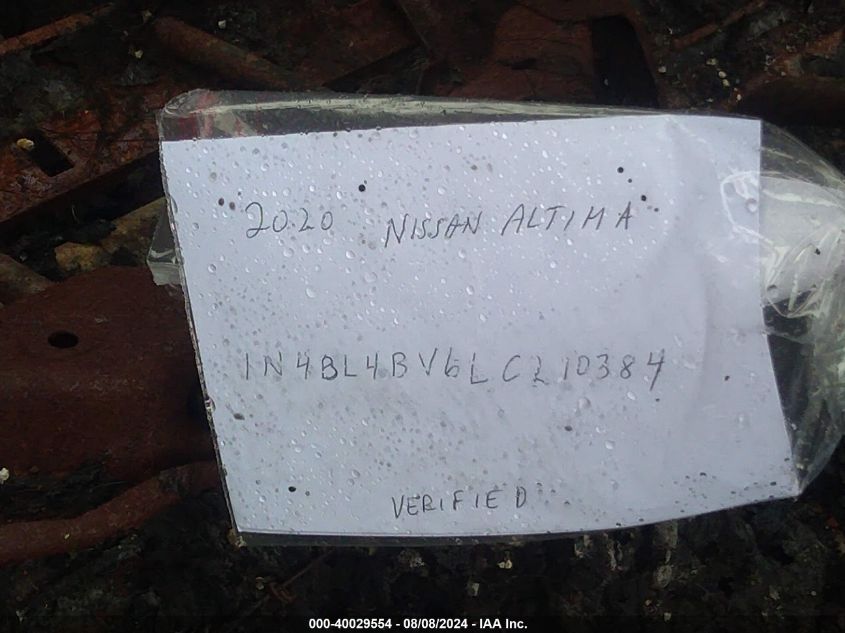 2020 NISSAN ALTIMA
1N4BL4BV6LC210384
VERIFIED
000-40029554 - 08/08/2024 - IAA Inc.